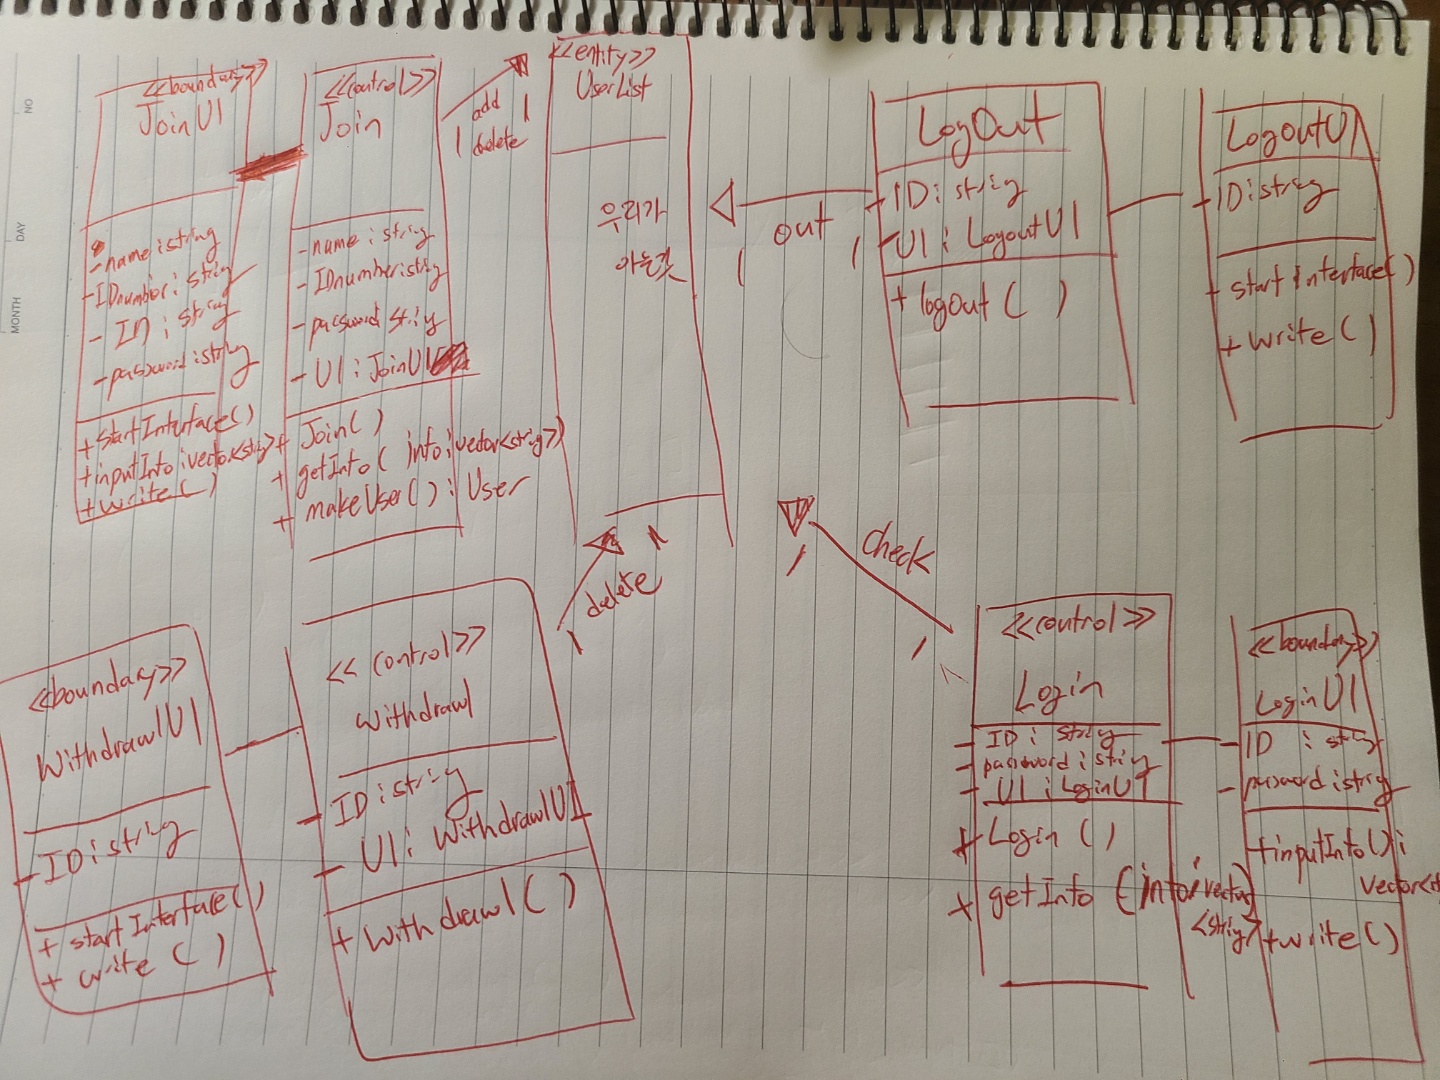 NO
DAY
MONTH
<<boundary>>
JoinUI
- name : string
- IDnumber : string
- ID : string
- password : string
+ startInterface()
+ inputInfo : vector<string>
+ write()
<<control>>
Join
- name : string
- IDnumber : string
- password string
- UI : JoinUI
+ Join()
+ getInfo( info : vector<string>)
+ makeUser() : User
add
1
1 delete
<<entity>>
UserList
우리가
아는것
out
1
1
LogOut
- ID : string
- UI : LogoutUI
+ logout( )
LogoutUI
- ID : string
+ start interface()
+ write()
<<boundary>>
WithdrawlUI
- ID : string
+ startInterface()
+ write()
<<control>>
withdrawl
- ID : string
- UI : WithdrawlUI
+ withdrawl()
1
delete
1
check
1
1
<<control>>
Login
- ID : string
- password : string
- UI : LoginUI
+ Login ()
+ getInfo (info : vector
<string>
<<boundary>>
LoginUI
- ID : string
- password : string
+inputInfo() :
vector<st
+write()